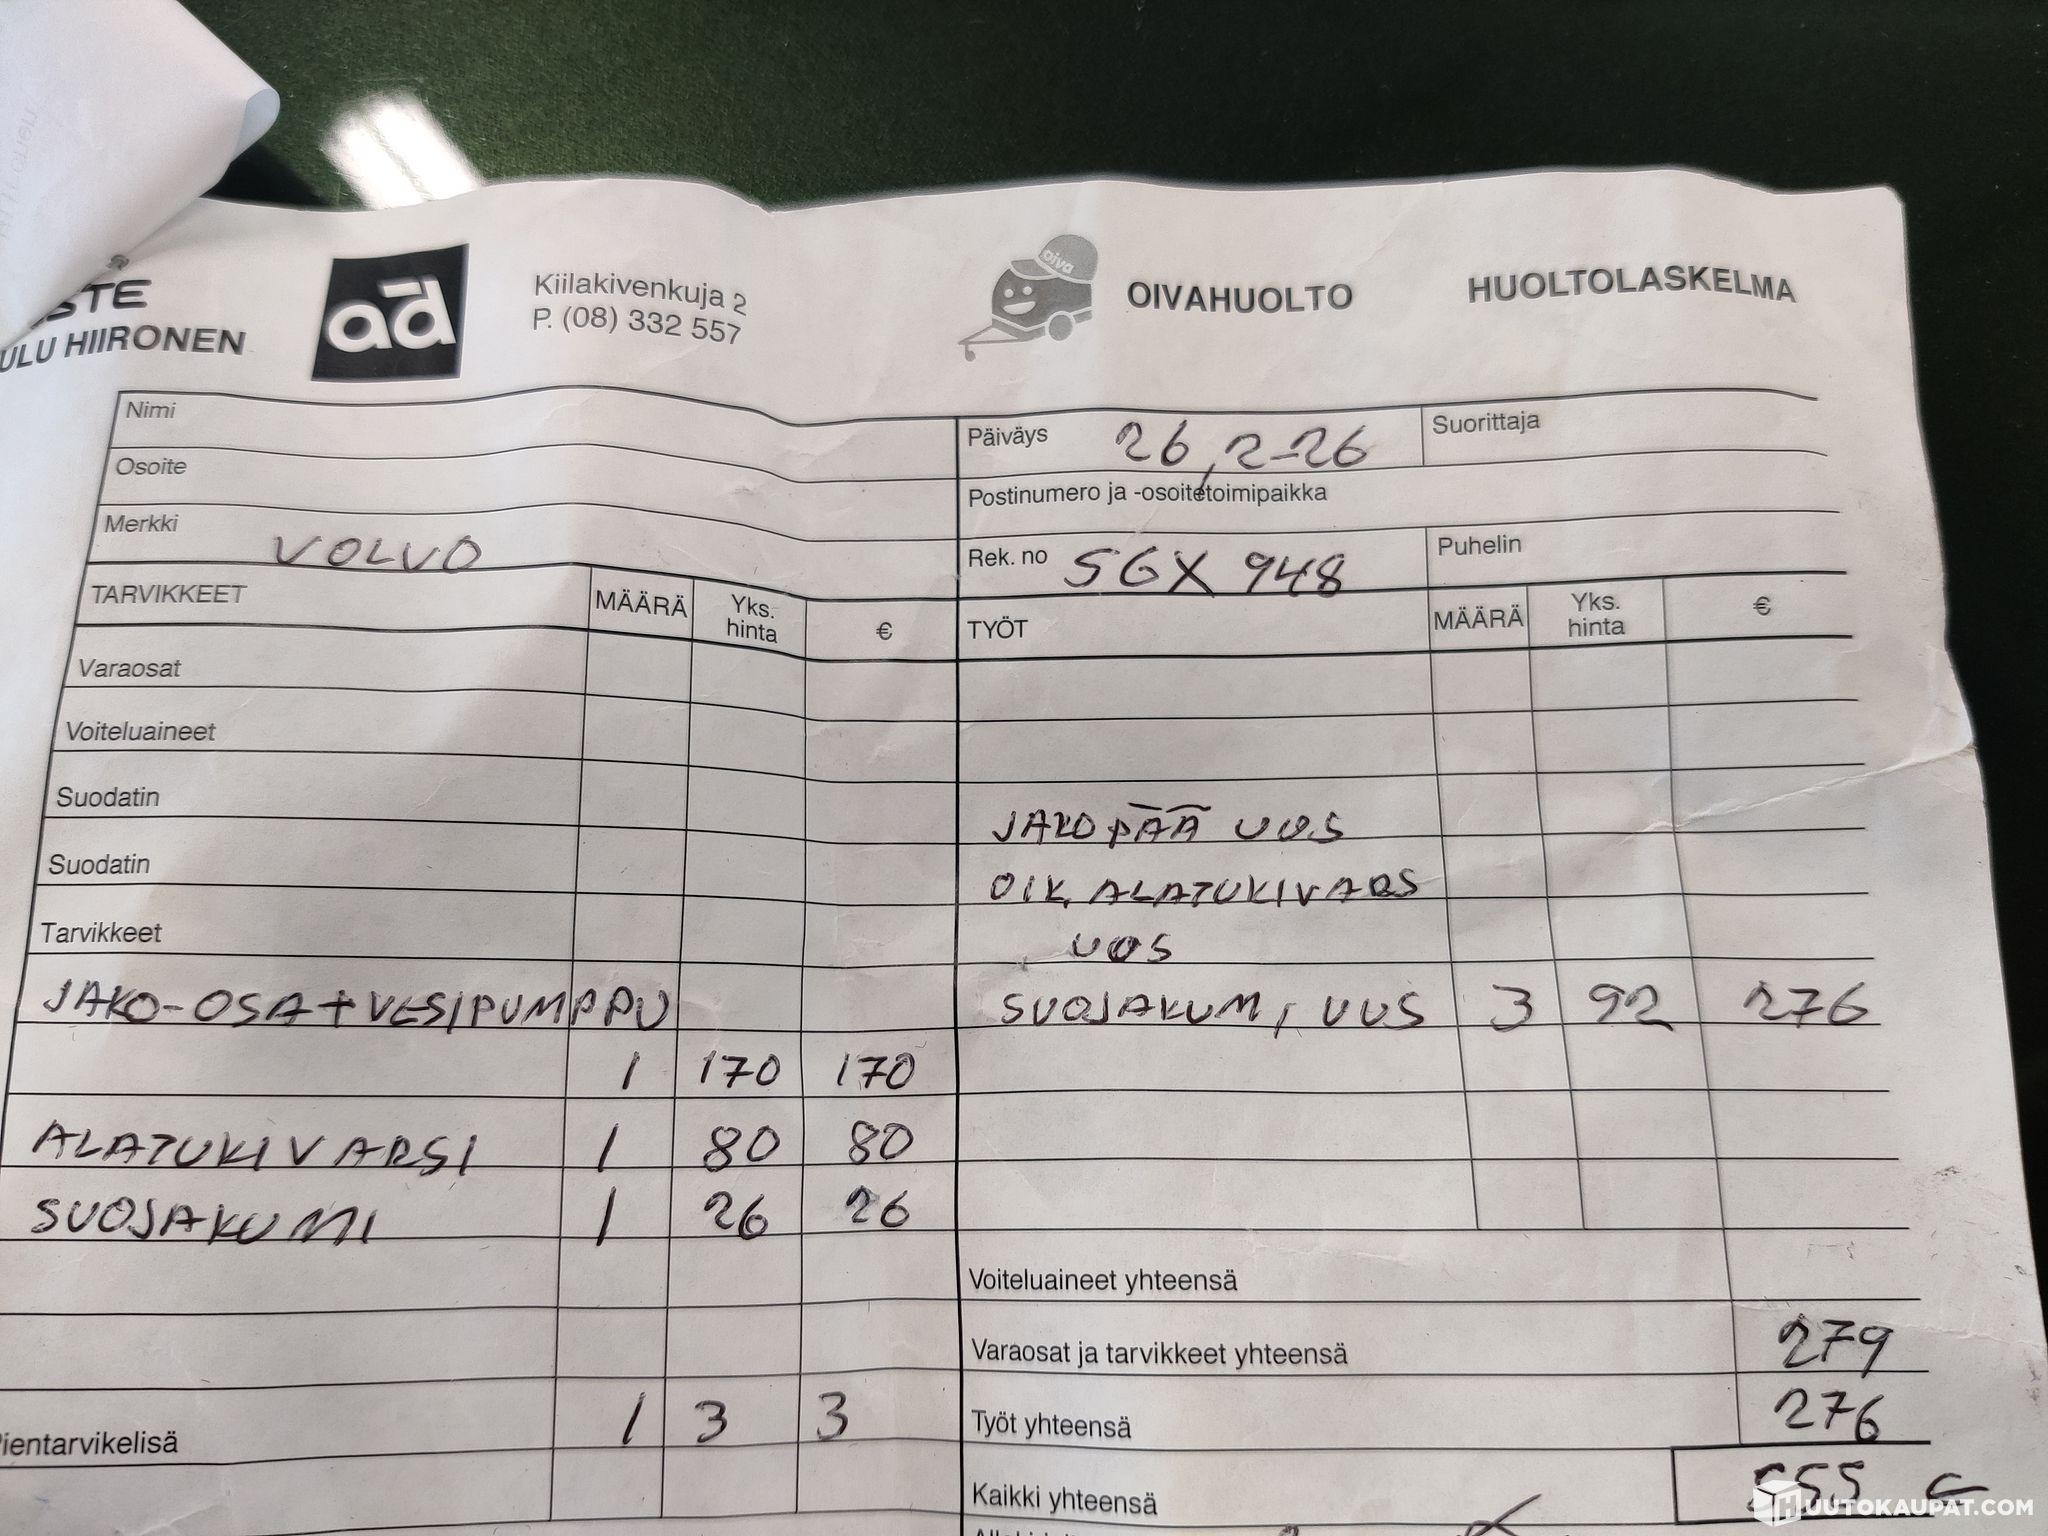 STE
ULU HIIRONEN
ad
Kiilakivenkuja 2
P. (08) 332 557
oiva
OIVAHUOLTO
HUOLTOLASKELMA
Nimi
Päiväys 26,2-26
Suorittaja
Osoite
Postinumero ja -osoitetoimipaikka
Merkki VOLVO
Rek. no SGX 948
Puhelin
TARVIKKEET MÄÄRÄ Yks. hinta €
TYÖT MÄÄRÄ Yks. hinta €
Varaosat
Voiteluaineet
Suodatin
JAKOPÄÄ UUS
Suodatin
OIK. ALATUKIVARS
Tarvikkeet
UUS
JAKO-OSA+VESIPUMPPU
SUOJAKUM, UUS 3 92 276
1 170 170
ALATUKIVARSI 1 80 80
SUOJAKUMI 1 26 26
Voiteluaineet yhteensä
Varaosat ja tarvikkeet yhteensä 279
ientarvikelisä 1 3 3
Työt yhteensä 276
Kaikki yhteensä 555 €
HUUTOKAUPAT.COM